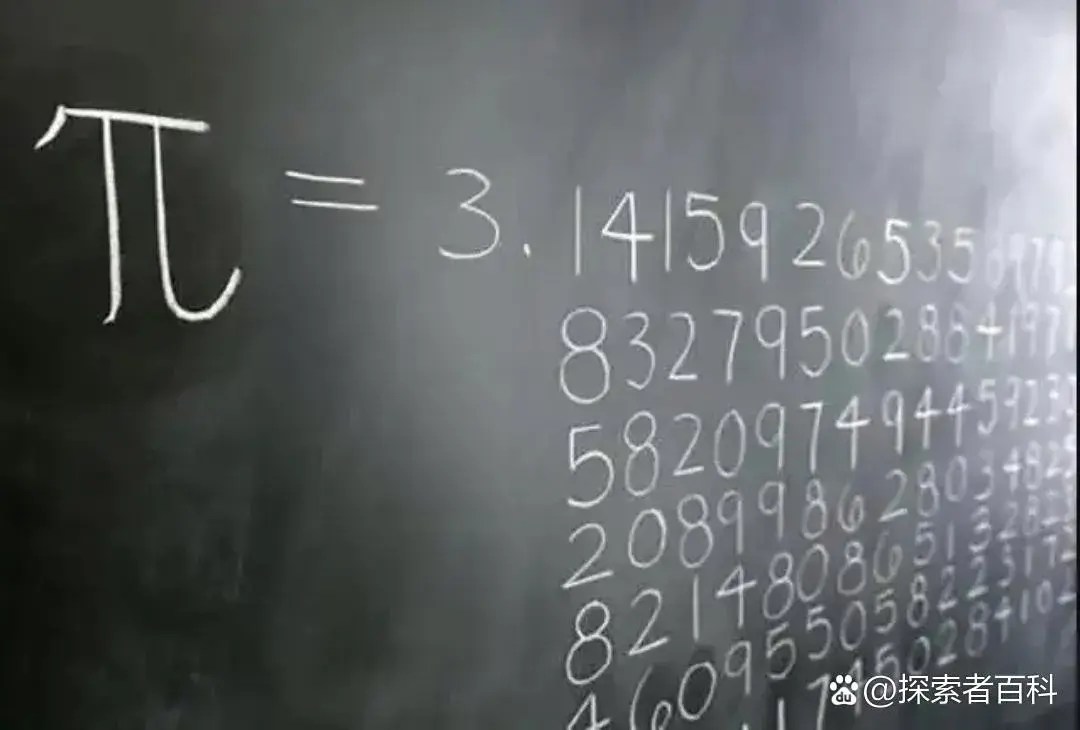 π = 3.14159265358979
832795028841971
58209749445923
208998628034825
8214808651328230
46095505822317
745028410
@探索者百科